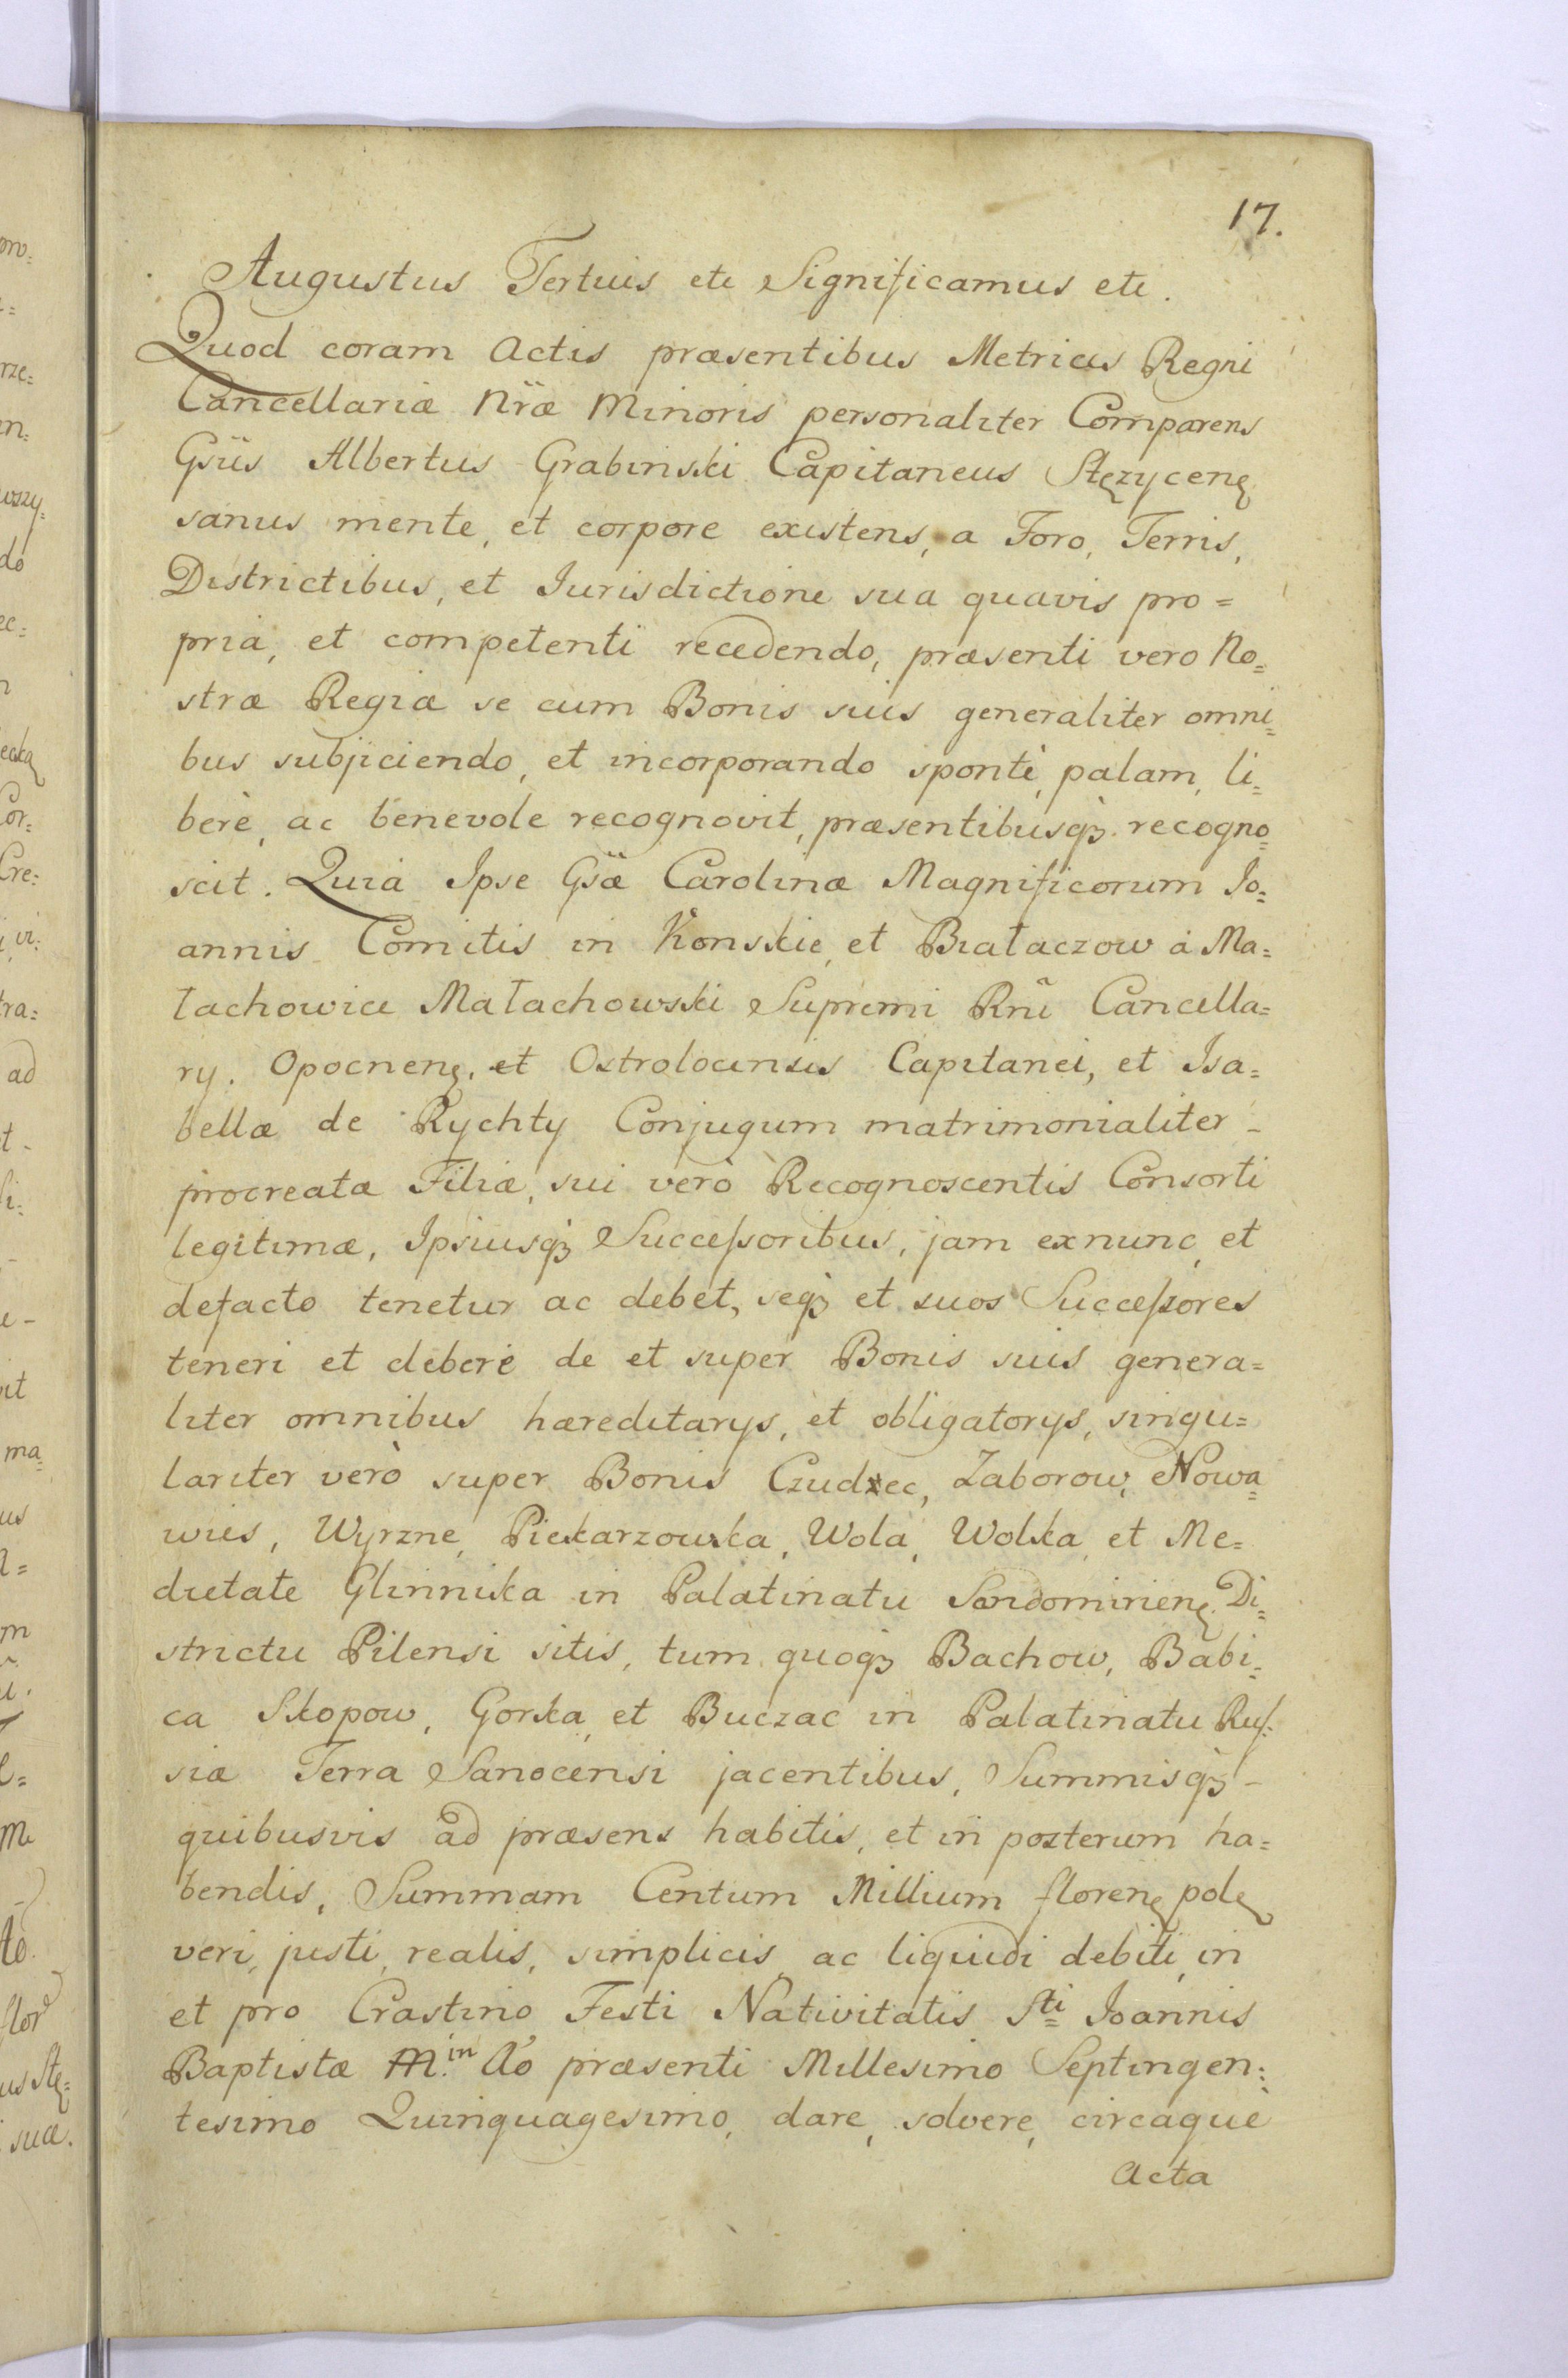 17.
Augustus Tertius etc Significamus etc.
Quod coram Actis præsentibus Metrices Regni
Cancellariæ Nr̃æ Minoris personaliter Comparens
Gsũs Albertus Grabinski Capitaneus Stęzycenꝭ
sanus mente, et corpore existens, a Foro, Terris,
Districtibus, et Jurisdictione sua quavis pro=
pria, et competenti recedendo, præsenti vero No=
stræ Regiæ se cum Bonis suis generaliter omni=
bus subjiciendo, et incorporando spontè, palam, li=
berè, ac benevole recognovit, præsentibusqꝫ recogno=
scit. Quia Ipse Gsæ Carolinæ Magnificorum Jo=
annis Comitis in Konskie, et Białaczow à Ma=
łachowice Małachowski Supremi Rñi Cancella=
ry. Opocnenꝭ. et Ostrolocensis Capitanei, et Isa=
bellæ de Rychty Conjugum matrimonialiter -
procreatæ Filiæ, sui verò Recognoscentis Consorti
legitimæ, Ipsiusqꝫ Successoribus, jam exnunc, et
defacto tenetur ac debet, seqꝫ et suos Successores
teneri et debere de et super Bonis suis genera=
liter omnibus hæreditarys, et obligatorys, singu=
lariter verò super Bonis Czudzec, Zaborow, Nowa=
wies, Wyrzne, Piekarzowska, Wola, Wolska, et Me=
dietate Glinnika in Palatinatu Sandomirienꝭ. Di=
strictu Pilensi sitis, tum quoqꝫ Bachow, Babi=
ca Skopow, Gorska, et Buczac in Palatinatu Rus=
siæ Terra Sanocensi jacentibus, Summisqꝫ -
quibusvis ad præsens habitis, et in posterum ha=
bendis, Summam Centum Millium florenꝭ polꝭ
veri, justi, realis, simplicis, ac liquidi debiti, in
et pro Crastino Festi Nativitatis Sti Joannis
Baptistæ M. in Ao præsenti Millesimo Septingen=
tesimo Quinquagesimo, dare, solvere, circaque
Acta